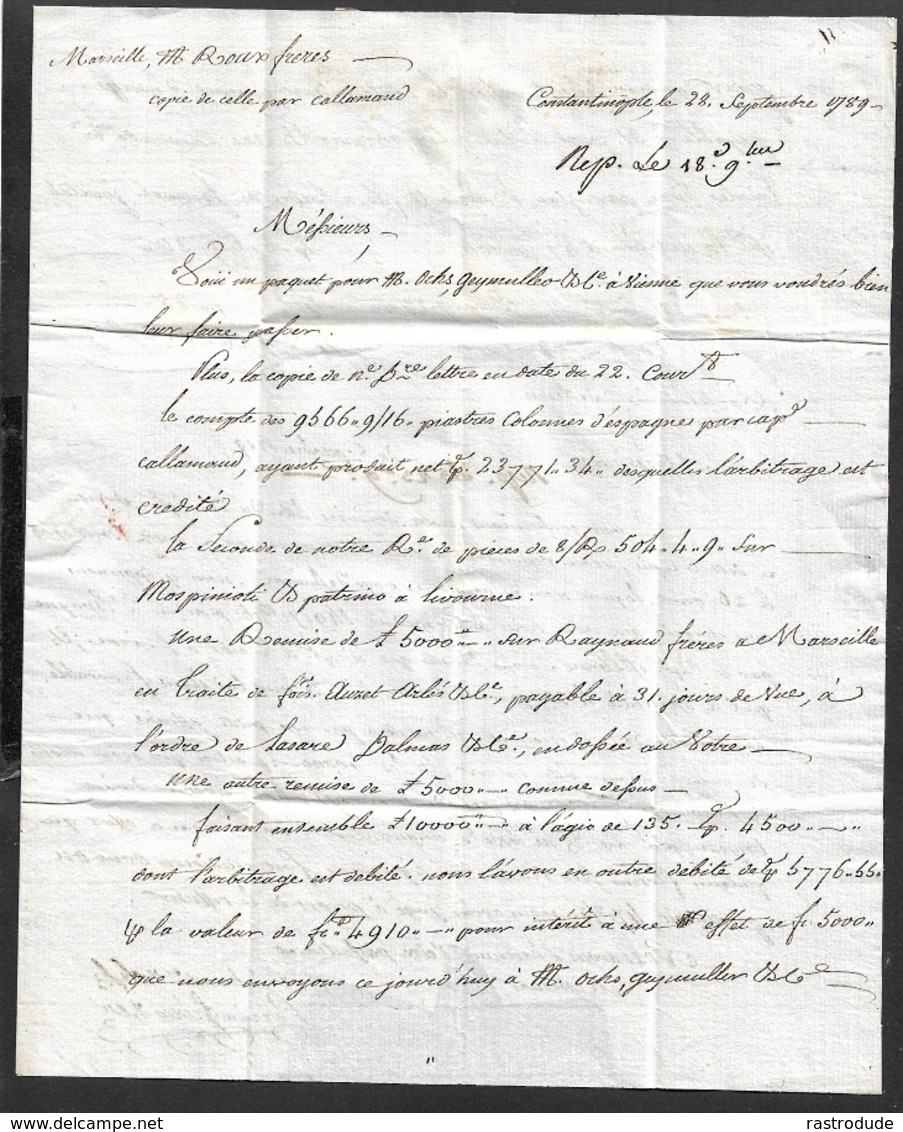 Marseille, M Roux freres
copie de celle par Callamand
Constantinople, le 28. Septembre 1789
Rep. Le 18e. 9bre
Messieurs
Voici un paquet pour M. Ochs, Geymuller & Ce. à Vienne que vous voudrés bien
leur faire passer.
Plus, la copie de ne. dre lettre en date du 22. Court
le compte des 9566 " 9/16 " piastres Colonnes d'Espagne par cape
Callamand, ayant produit net 23771 " 34 " desquelles l'arbitrage est
credité
la Seconde de notre Re. de pieces de 8/R 504 " 4 " 9 " sur
Mospinioti & patrino à livourne.
une Remise de £ 5000 " - " sur Raynaud fréres a Marseille
en traite de fois. Auzet Arlés & Ce, payable à 31. jours de vue, à
l'ordre de Lasare Dalmas & Ce, endossée au Votre
une autre remise de £ 5000 " - " comme dessus
faisant ensemble £ 10000 " à l'agio de 135. 4500 " - "
dont l'arbitrage est debité. nous l'avons en outre débité de 5776 " 55 "
la valeur de 4910 " - " pour intérêt à une effet de f. 5000 "
que nous envoyons ce jourd'huy à M. Ochs, geymuller & Ce
www.delcampe.net
rastrodude